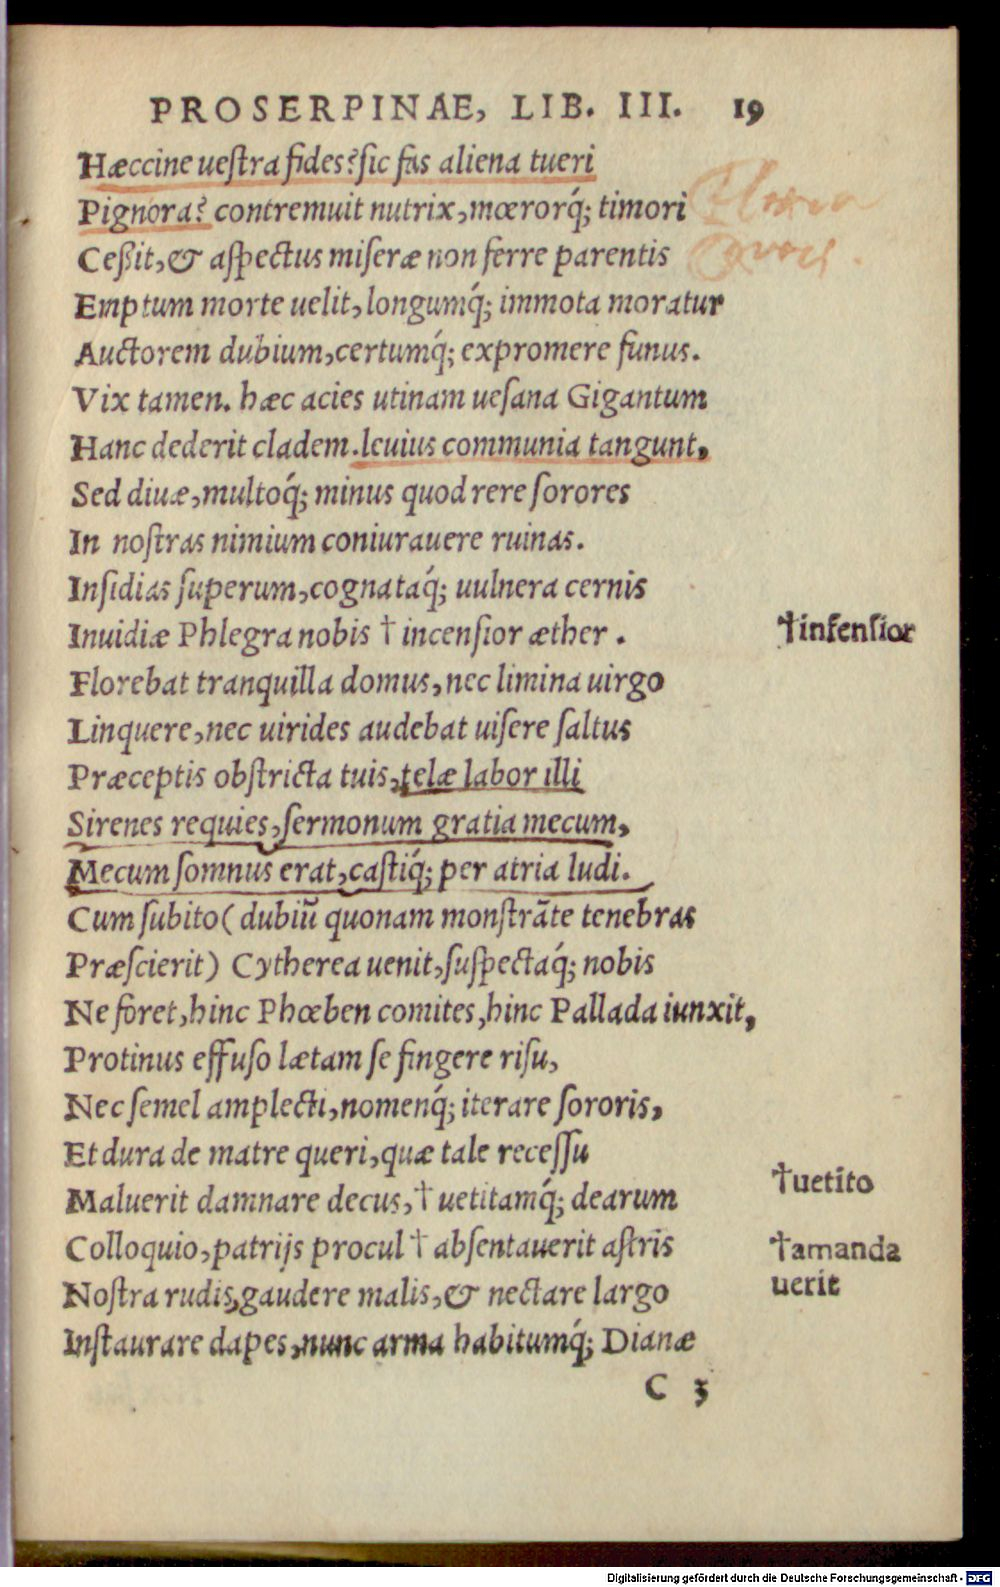 PROSERPINAE, LIB. III. 19
Hæccine ueſtra fides? ſic fas aliena tueri
Pignora? contremuit nutrix, mœrorq́; timori
Ceßit, & aſpectus miſeræ non ferre parentis
Emptum morte uelit, longumq́; immota moratur
Auctorem dubium, certumq́; expromere funus.
Vix tamen. hæc acies utinam ueſana Gigantum
Hanc dederit cladem. leuius communia tangunt,
Sed diuæ, multoq́; minus quod rere ſorores
In noſtras nimium coniurauere ruinas.
Inſidias ſuperum, cognataq́; uulnera cernis
Inuidiæ Phlegra nobis † incenſior æther. †infenſior
Florebat tranquilla domus, nec limina uirgo
Linquere, nec uirides audebat uiſere ſaltus
Præceptis obſtricta tuis, telæ labor illi
Sirenes requies, ſermonum gratia mecum,
Mecum ſomnus erat, caſtiq́; per atria ludi.
Cum ſubito (dubiū quonam monſtrāte tenebras
Præſcierit) Cytherea uenit, ſuſpectaq́; nobis
Ne foret, hinc Phœben comites, hinc Pallada iunxit,
Protinus effuſo lætam ſe fingere riſu,
Nec ſemel amplecti, nomenq́; iterare ſororis,
Et dura de matre queri, quæ tale receſſu
Maluerit damnare decus, † uetitamq́; dearum †uetito
Colloquio, patrijs procul † abſentauerit aſtris †amanda
Noſtra rudis, gaudere malis, & nectare largo uerit
Inſtaurare dapes, nunc arma habitumq́; Dianæ
C 3
Digitalisierung gefördert durch die Deutsche Forschungsgemeinschaft - DFG